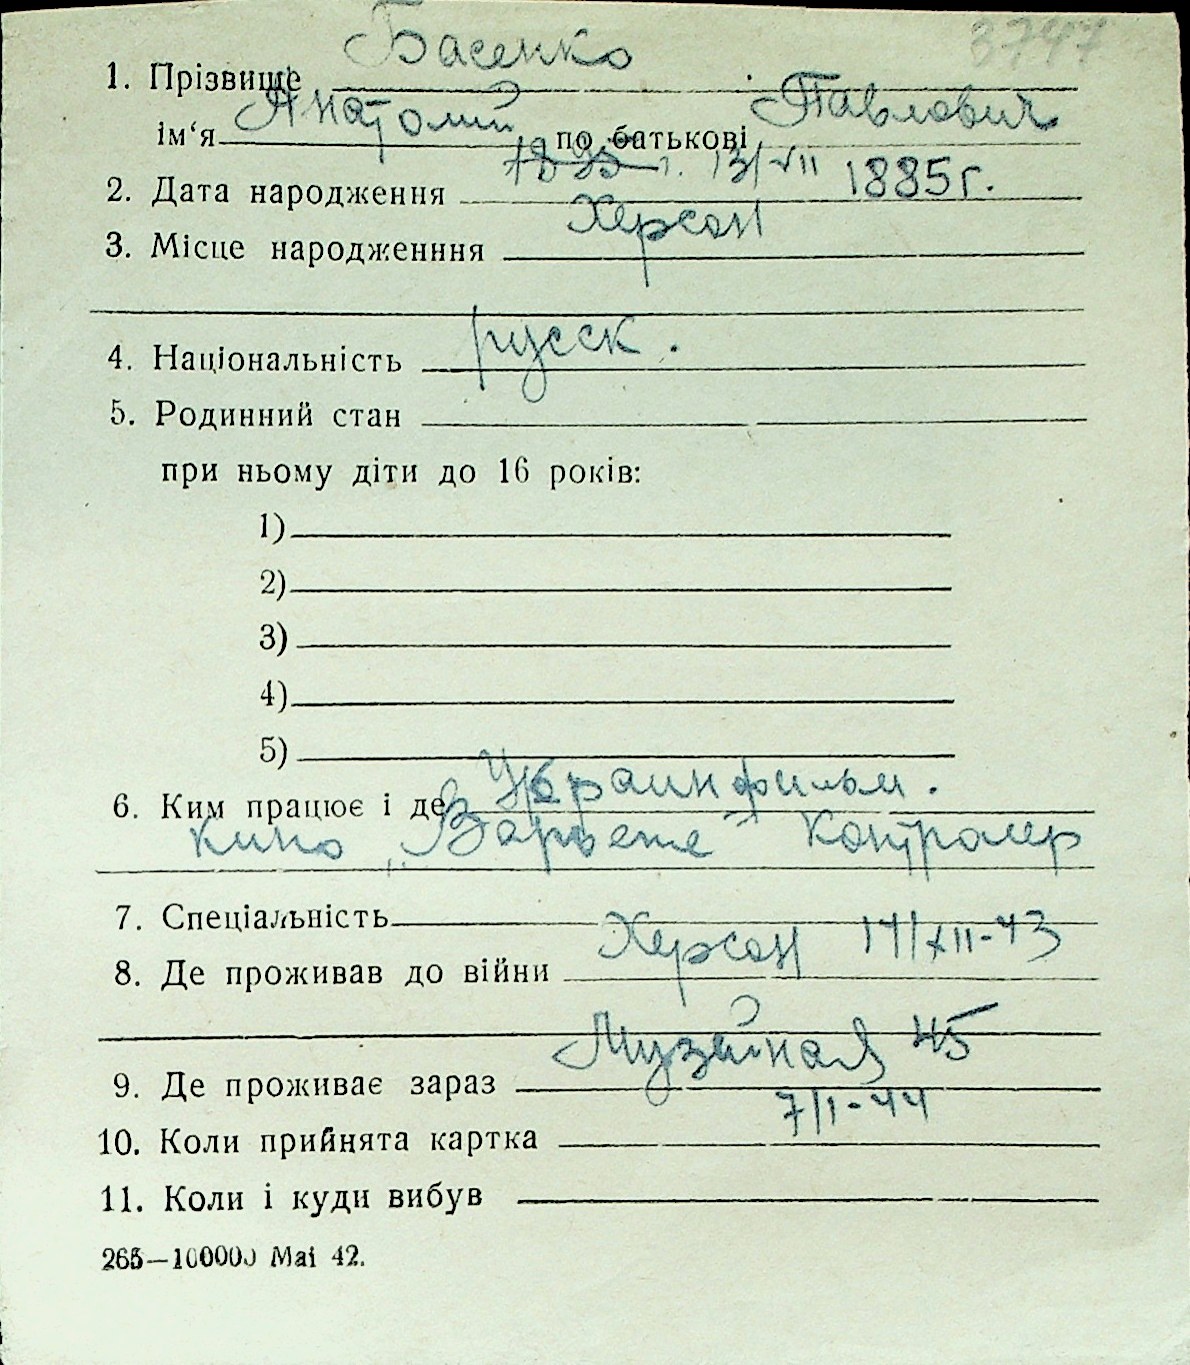 3747
1. Прізвище Басенко
ім‘я Анатолий по батькові Павлович
2. Дата народження 13/VII 1885 г.
3. Місце народженння Херсон
4. Національність русск.
5. Родинний стан
при ньому діти до 16 років:
1)
2)
3)
4)
5)
6. Ким працює і де Украинфильм.
Кино „Варьете" Контролер
7. Спеціальність
8. Де проживав до війни Херсон 14/XII-43
9. Де проживає зараз Музейная 45
10. Коли прийнята картка 7/I-44
11. Коли і куди вибув
265—100000 Mai 42.